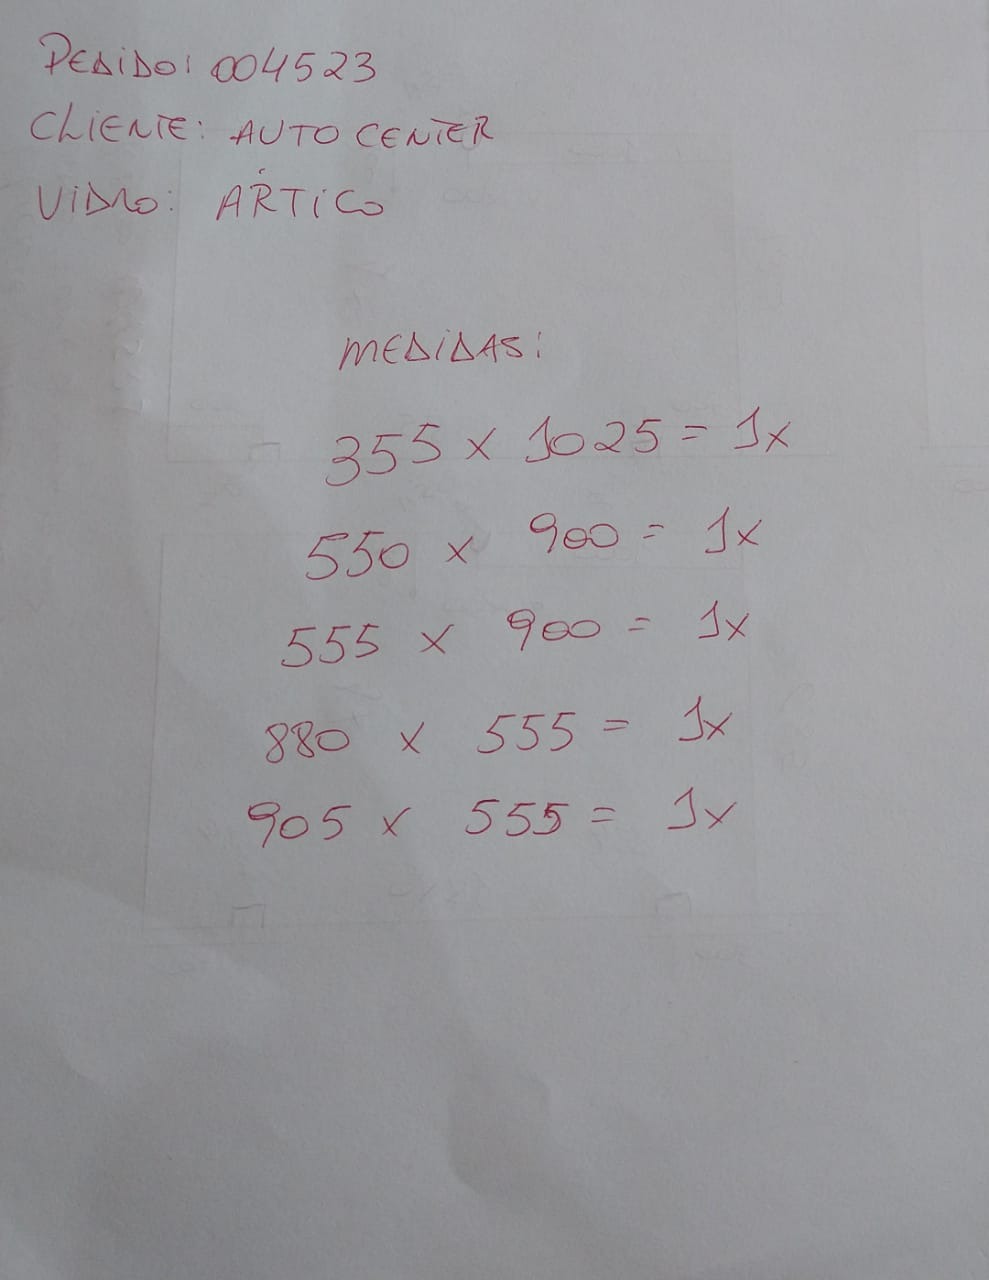 PEDIDO: 004523
CLIENTE: AUTO CENTER
VIDRO: ARTICO
MEDIDAS:
355 x 1025 = 1x
550 x 900 = 1x
555 x 900 = 1x
880 x 555 = 1x
905 x 555 = 1x